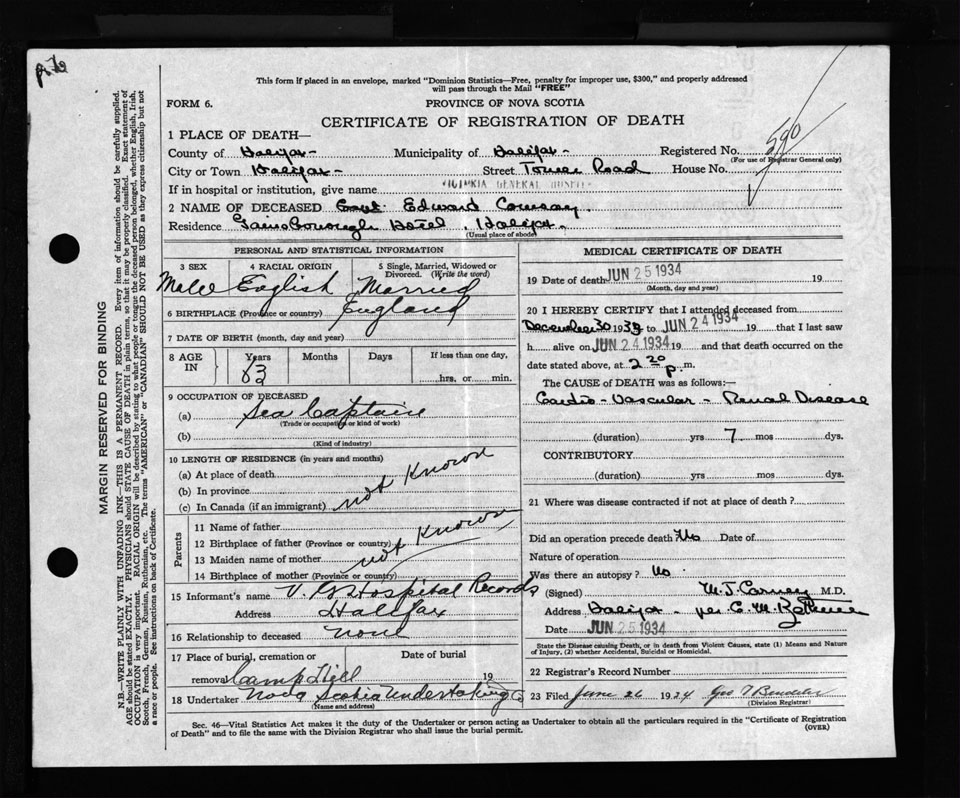 This form if placed in an envelope, marked "Dominion Statistics—Free, penalty for improper use, $300," and properly addressed
will pass through the Mail "FREE"
FORM 6.
PROVINCE OF NOVA SCOTIA
CERTIFICATE OF REGISTRATION OF DEATH
1 PLACE OF DEATH—
County of Halifax - Municipality of Halifax - Registered No. 590
(For use of Registrar General only)
City or Town Halifax - Street Tower Road House No.
If in hospital or institution, give name VICTORIA GENERAL HOSPITAL
2 NAME OF DECEASED Capt. Edward
Residence Gainsborough Hotel, Halifax.
(Usual place of abode)
MARGIN RESERVED FOR BINDING
N.B.—WRITE PLAINLY WITH UNFADING INK—THIS IS A PERMANENT RECORD. Every item of information should be carefully supplied.
AGE should be stated EXACTLY. PHYSICIANS should STATE CAUSE OF DEATH in plain terms, so that it may be properly classified. Exact statement of
OCCUPATION is very important. RACIAL ORIGIN will be described by stating to what people or tongue the deceased person belonged, whether English, Irish,
Scotch, French, German, Russian, Ruthenian, etc. The terms "AMERICAN" or "CANADIAN" SHOULD NOT BE USED as they express citizenship but not
a race or people. See instructions on back of Certificate.
PERSONAL AND STATISTICAL INFORMATION
3 SEX 4 RACIAL ORIGIN 5 Single, Married, Widowed or
Divorced. (Write the word)
Male English Married
6 BIRTHPLACE (Province or country) England
7 DATE OF BIRTH (month, day and year)
8 AGE IN Years Months Days If less than one day,
63 hrs. or min.
9 OCCUPATION OF DECEASED
(a) Sea Captain
(Trade or occupation or kind of work)
(b)
(Kind of industry)
10 LENGTH OF RESIDENCE (in years and months)
(a) At place of death
(b) In province
(c) In Canada (if an immigrant) not known
Parents
11 Name of father
12 Birthplace of father (Province or country)
13 Maiden name of mother not known
14 Birthplace of mother (Province or country)
15 Informant's name V. G. Hospital Records
Address Halifax
16 Relationship to deceased none
17 Place of burial, cremation or Date of burial
removal Camp Hill 19
18 Undertaker Nova Scotia Undertaking Co
(Name and address)
MEDICAL CERTIFICATE OF DEATH
19 Date of death JUN 25 1934 19
(Month, day and year)
20 I HEREBY CERTIFY that I attended deceased from
December 30 1933 to JUN 24 1934 19 that I last saw
h alive on JUN 24 1934 19 and that death occurred on the
date stated above, at 2 20 p. m.
The CAUSE of DEATH was as follows:—
Cardio - Vascular - Renal Disease
(duration) yrs 7 mos dys.
CONTRIBUTORY
(duration) yrs mos dys.
21 Where was disease contracted if not at place of death?
Did an operation precede death? No Date of
Nature of operation
Was there an autopsy? No
(Signed) M. J. Carney M.D.
Address Halifax - per E. M.
Date JUN 25 1934
State the Disease causing Death, or in death from Violent Causes, state (1) Means and Nature
of Injury, (2) whether Accidental, Suicidal or Homicidal.
22 Registrar's Record Number
23 Filed June 26 1934 Geo
(Division Registrar)
Sec. 46—Vital Statistics Act makes it the duty of the Undertaker or person acting as Undertaker to obtain all the particulars required in the "Certificate of Registration
of Death" and to file the same with the Division Registrar who shall issue the burial permit.
(OVER)